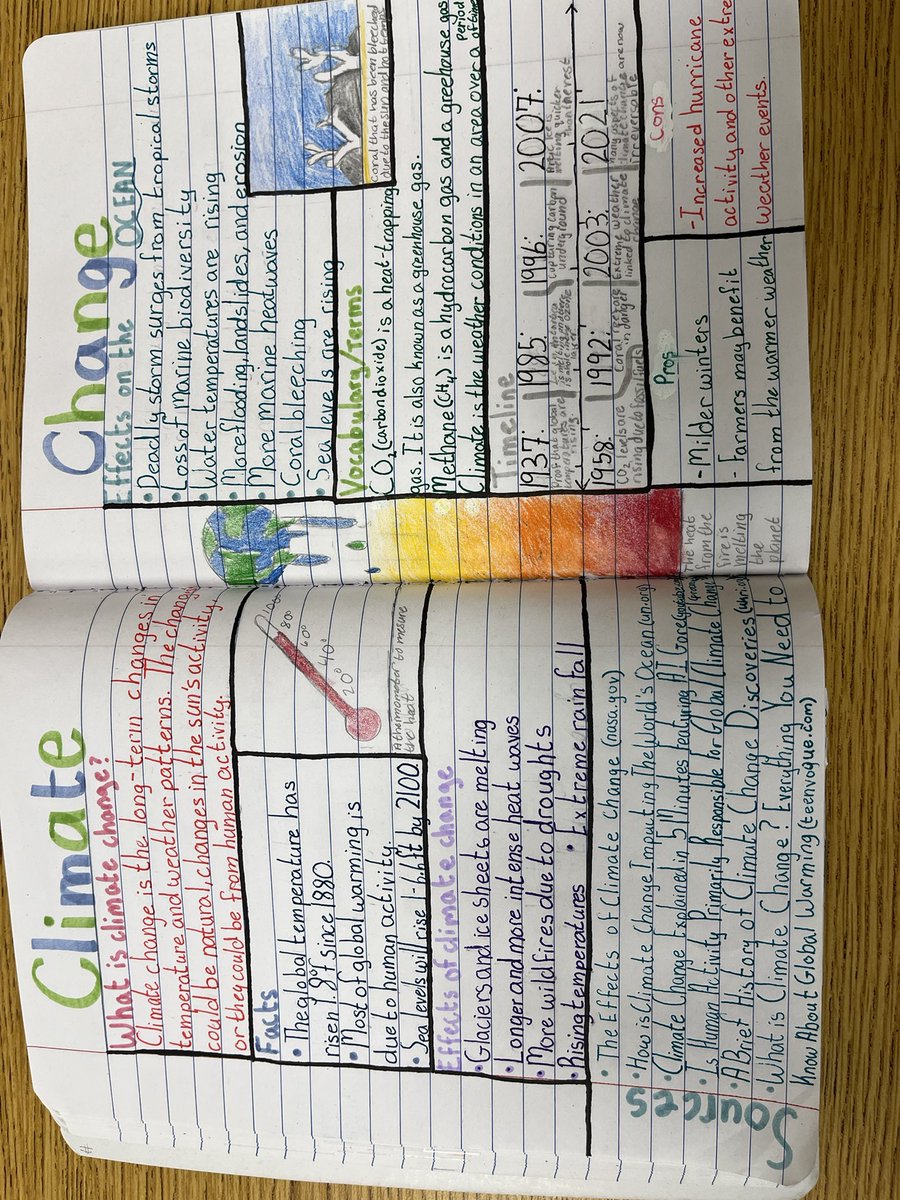 Climate Change
What is climate change?
Climate change is the long-term changes in
temperature and weather patterns. The changes
could be natural, changes in the sun's activity
or they could be from human activity.
Facts
• The global temperature has
risen 1.8°F since 1880.
• Most of global warming is
due to human activity.
• Sea levels will rise 1-6.6ft by 2100
100°
80°
60°
40°
20°
to mesure
the heat.
Effects of climate change
• Glaciers and ice sheets are melting
• Longer and more intense heat waves
• More wildfires due to droughts
• Rising temperatures • Extreme rain fall
Sources
• The Effects of Climate change (nasa.gov)
• How is Climate Change Impacting The World's Ocean (un.org)
• Climate Change Explained in 5 Minutes Featuring Al Gore
• Is Human Activity Primarily Responsible for Global Climate Change
• A Brief History of Climate Change Discoveries
• What is Climate Change? Everything You Need to
Know About Global Warming (teenvogue.com)
The heat
from the
fire is
melting
the
planet
Effects on the OCEAN
• Deadly storm surges from tropical storms
• Loss of marine biodiversity
• Water temperatures are rising
• More flooding, landslides, and erosion
• More marine heatwaves
• Coral bleaching
• Sea levels are rising
Coral that has been bleached
due to the sun and hot temps
Vocabulary/Terms
CO₂ (carbon dioxide) is a heat-trapping
gas. It is also known as a greenhouse gas.
Methane (CH₄) is a hydrocarbon gas and a greenhouse gas
Climate is the weather conditions in an area over a period of time
Timeline
1937:
Proof that global
temperatures are
rising
1985:
1996:
Capturing carbon
underground
2007:
Arctic ice is
melting quicker
than the rest
1958:
CO₂ levels are
rising due to fossil fuels
1992:
Coral reefs are
in danger
2003:
Extreme weather
linked to climate
change
2021:
Many aspects of
climate change are now
irreversable
Pros
- Milder winters
- Farmers may benefit
from the warmer weather
Cons
- Increased hurricane
activity and other extreme
weather events.